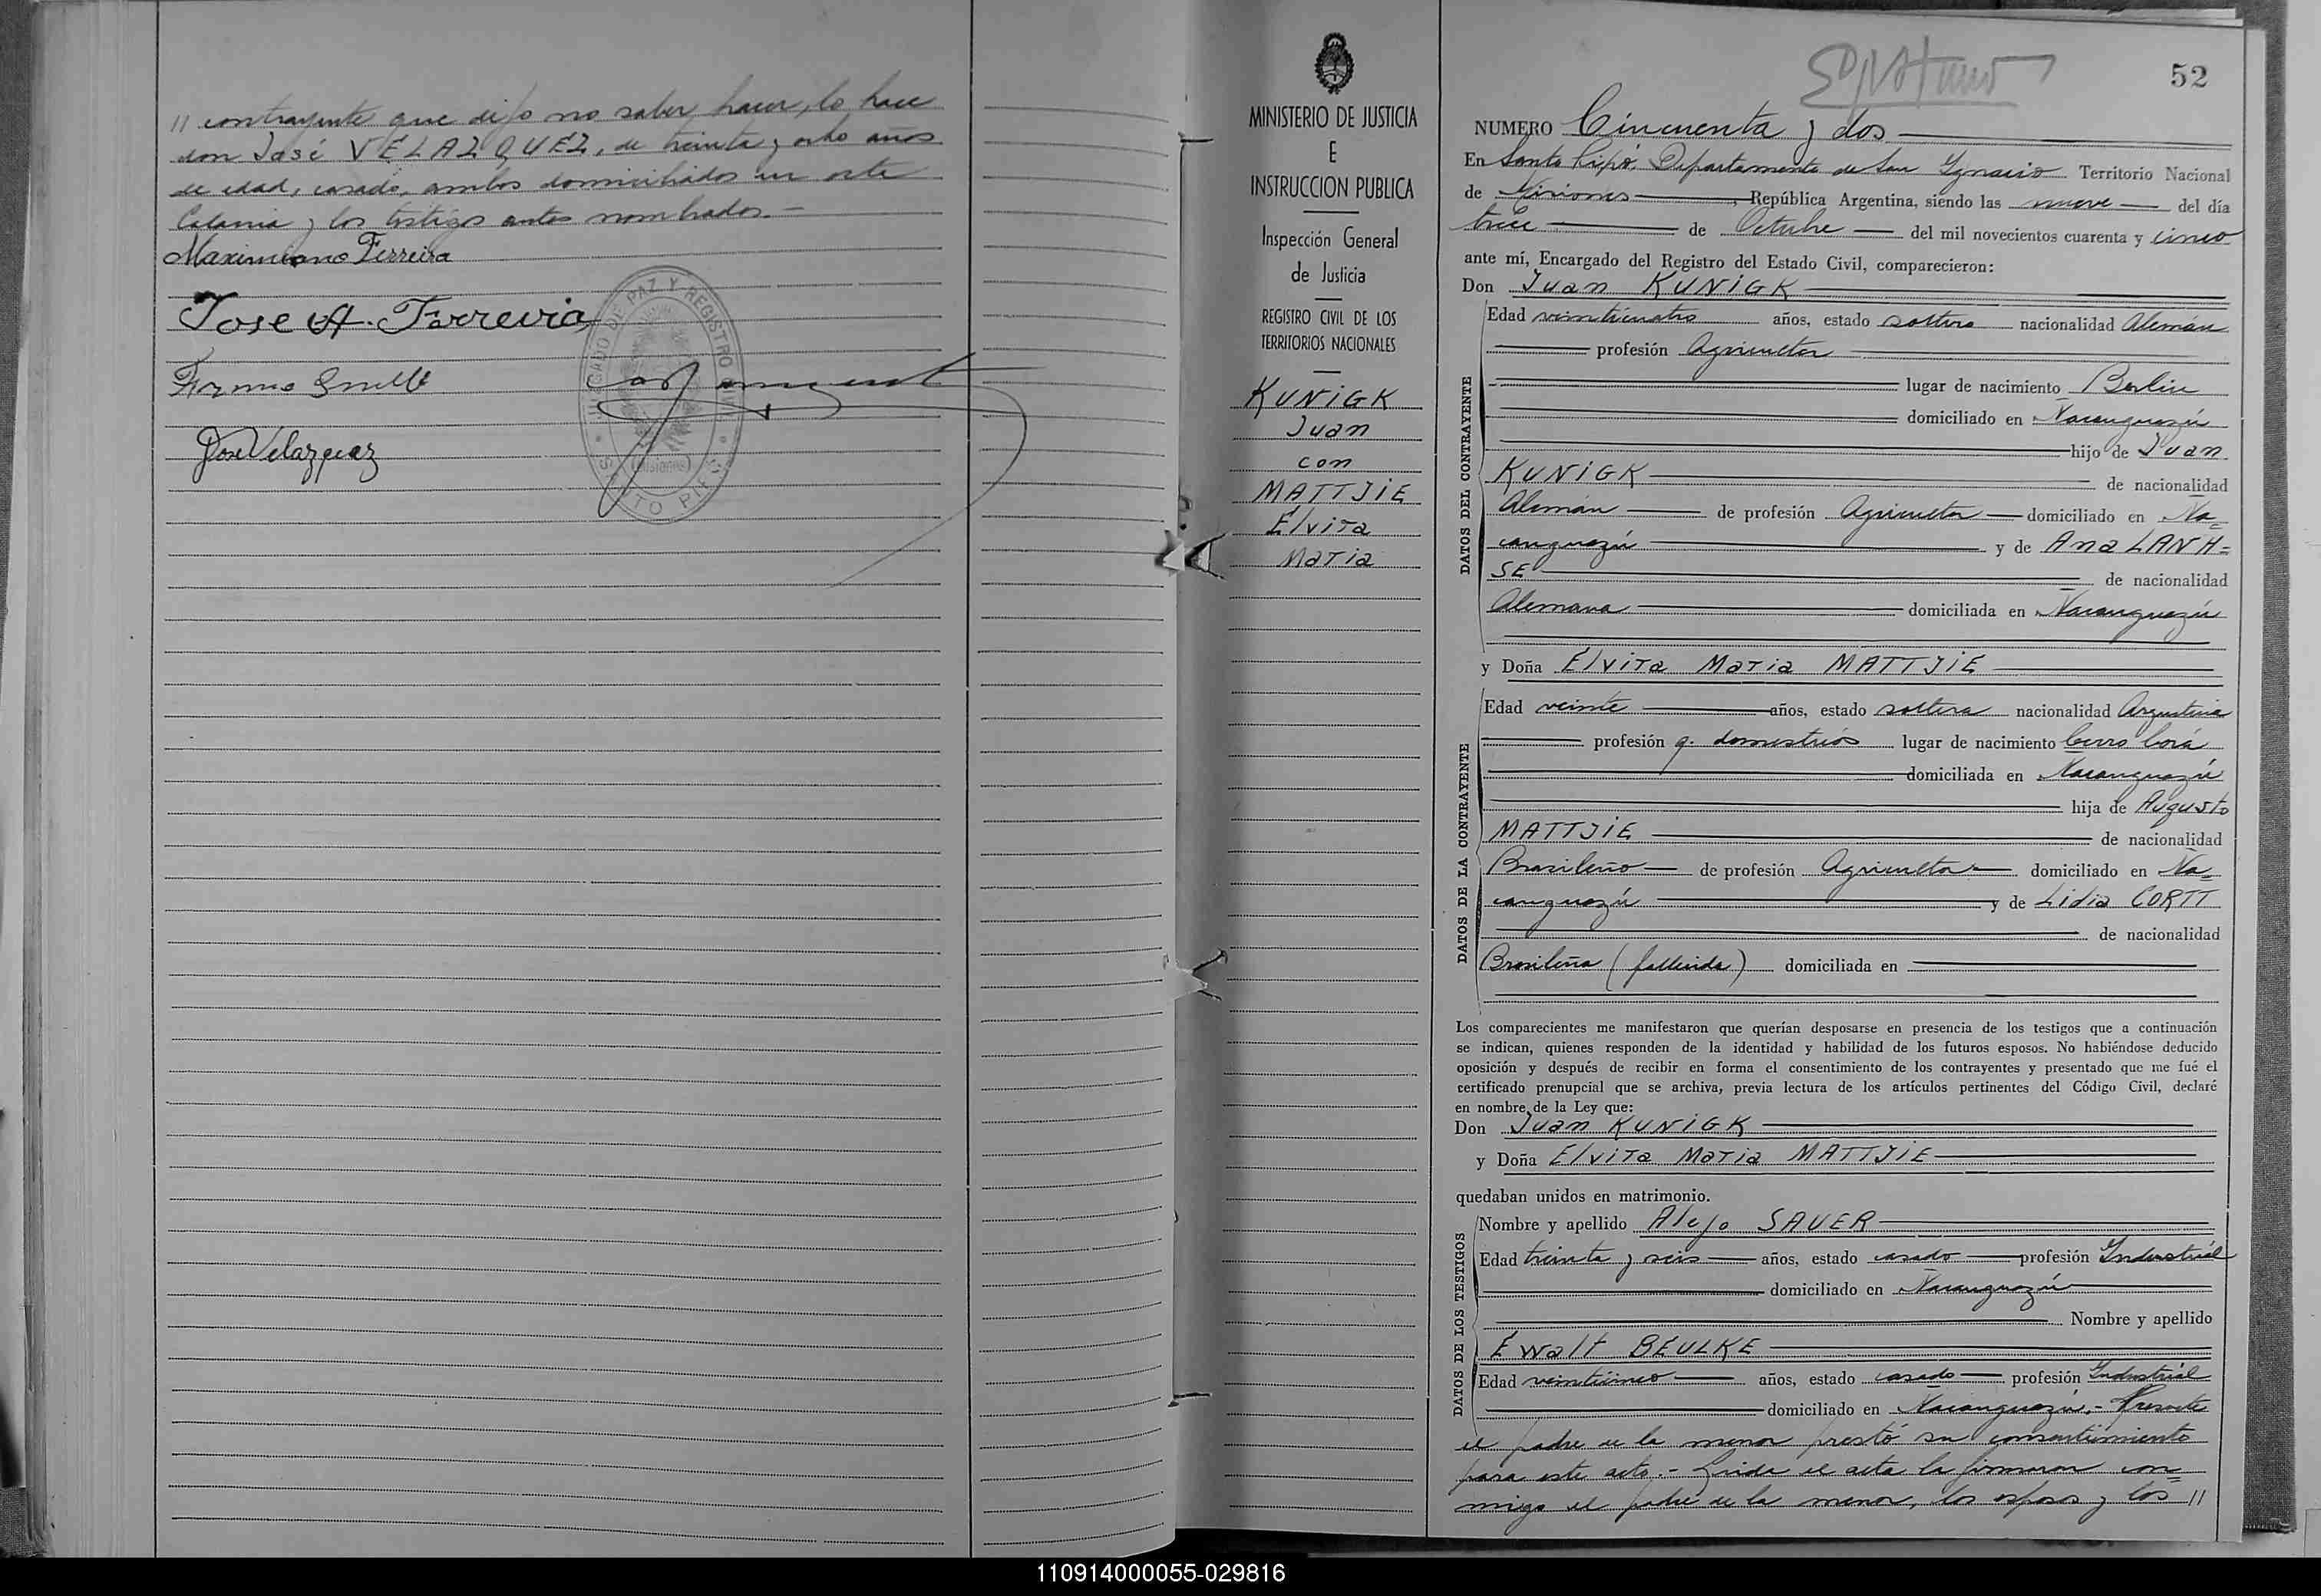 // contrayente que dijo no saber hacer, lo hace
don José VELAZQUEZ, de treinta y ocho años
de edad, casado, ambos domiciliados en esta
Colonia y los testigos antes nombrados.-
Maximiano Ferreira
Jose A. Ferreira
JUZGADO DE PAZ Y REGISTRO CIVIL
(Misiones)
SANTO PIPO
Jose Velazquez
MINISTERIO DE JUSTICIA
E
INSTRUCCION PUBLICA
Inspección General
de Justicia
REGISTRO CIVIL DE LOS
TERRITORIOS NACIONALES
KUNiGK
Juan
con
MATTJiE
Elvira
Maria
52
NUMERO Cincuenta y dos
En Santo Pipó, Departamento de San Ignacio Territorio Nacional
de Misiones, República Argentina, siendo las nueve del día
trece de Octubre del mil novecientos cuarenta y cinco
ante mí, Encargado del Registro del Estado Civil, comparecieron:
Don Juan KUNiGK
DATOS DEL CONTRAYENTE
Edad veinticuatro años, estado soltero nacionalidad Alemán
profesión Agricultor
lugar de nacimiento Berlin
domiciliado en Ñacanguazú
hijo de Juan
KUNiGK de nacionalidad
Alemán de profesión Agricultor domiciliado en Ña=
canguazú y de Ana LANH=
SE de nacionalidad
Alemana domiciliada en Ñacanguazú
y Doña Elvira Maria MATTJiE
DATOS DE LA CONTRAYENTE
Edad veinte años, estado soltera nacionalidad Argentina
profesión q. domesticos lugar de nacimiento Cerro Corá
domiciliada en Ñacanguazú
hija de Augusto
MATTJiE de nacionalidad
Brasileño de profesión Agricultor domiciliado en Ña=
canguazú y de Lidia CORTT
de nacionalidad
Brasileña (fallecida) domiciliada en
Los comparecientes me manifestaron que querían desposarse en presencia de los testigos que a continuación
se indican, quienes responden de la identidad y habilidad de los futuros esposos. No habiéndose deducido
oposición y después de recibir en forma el consentimiento de los contrayentes y presentado que me fué el
certificado prenupcial que se archiva, previa lectura de los artículos pertinentes del Código Civil, declaré
en nombre de la Ley que:
Don Juan KUNiGK
y Doña Elvira Maria MATTJiE
quedaban unidos en matrimonio.
DATOS DE LOS TESTIGOS
Nombre y apellido Alejo SAUER
Edad treinta y seis años, estado casado profesión Industrial
domiciliado en Ñacanguazú
Nombre y apellido
Ewalt BEULKE
Edad veinticinco años, estado casado profesión Industrial
domiciliado en Ñacanguazú.- Presente
el padre de la menor prestó su consentimiento
para este acto.- Leida el acta la firmaron con=
migo el padre de la menor, los esposos y los //
110914000055-029816